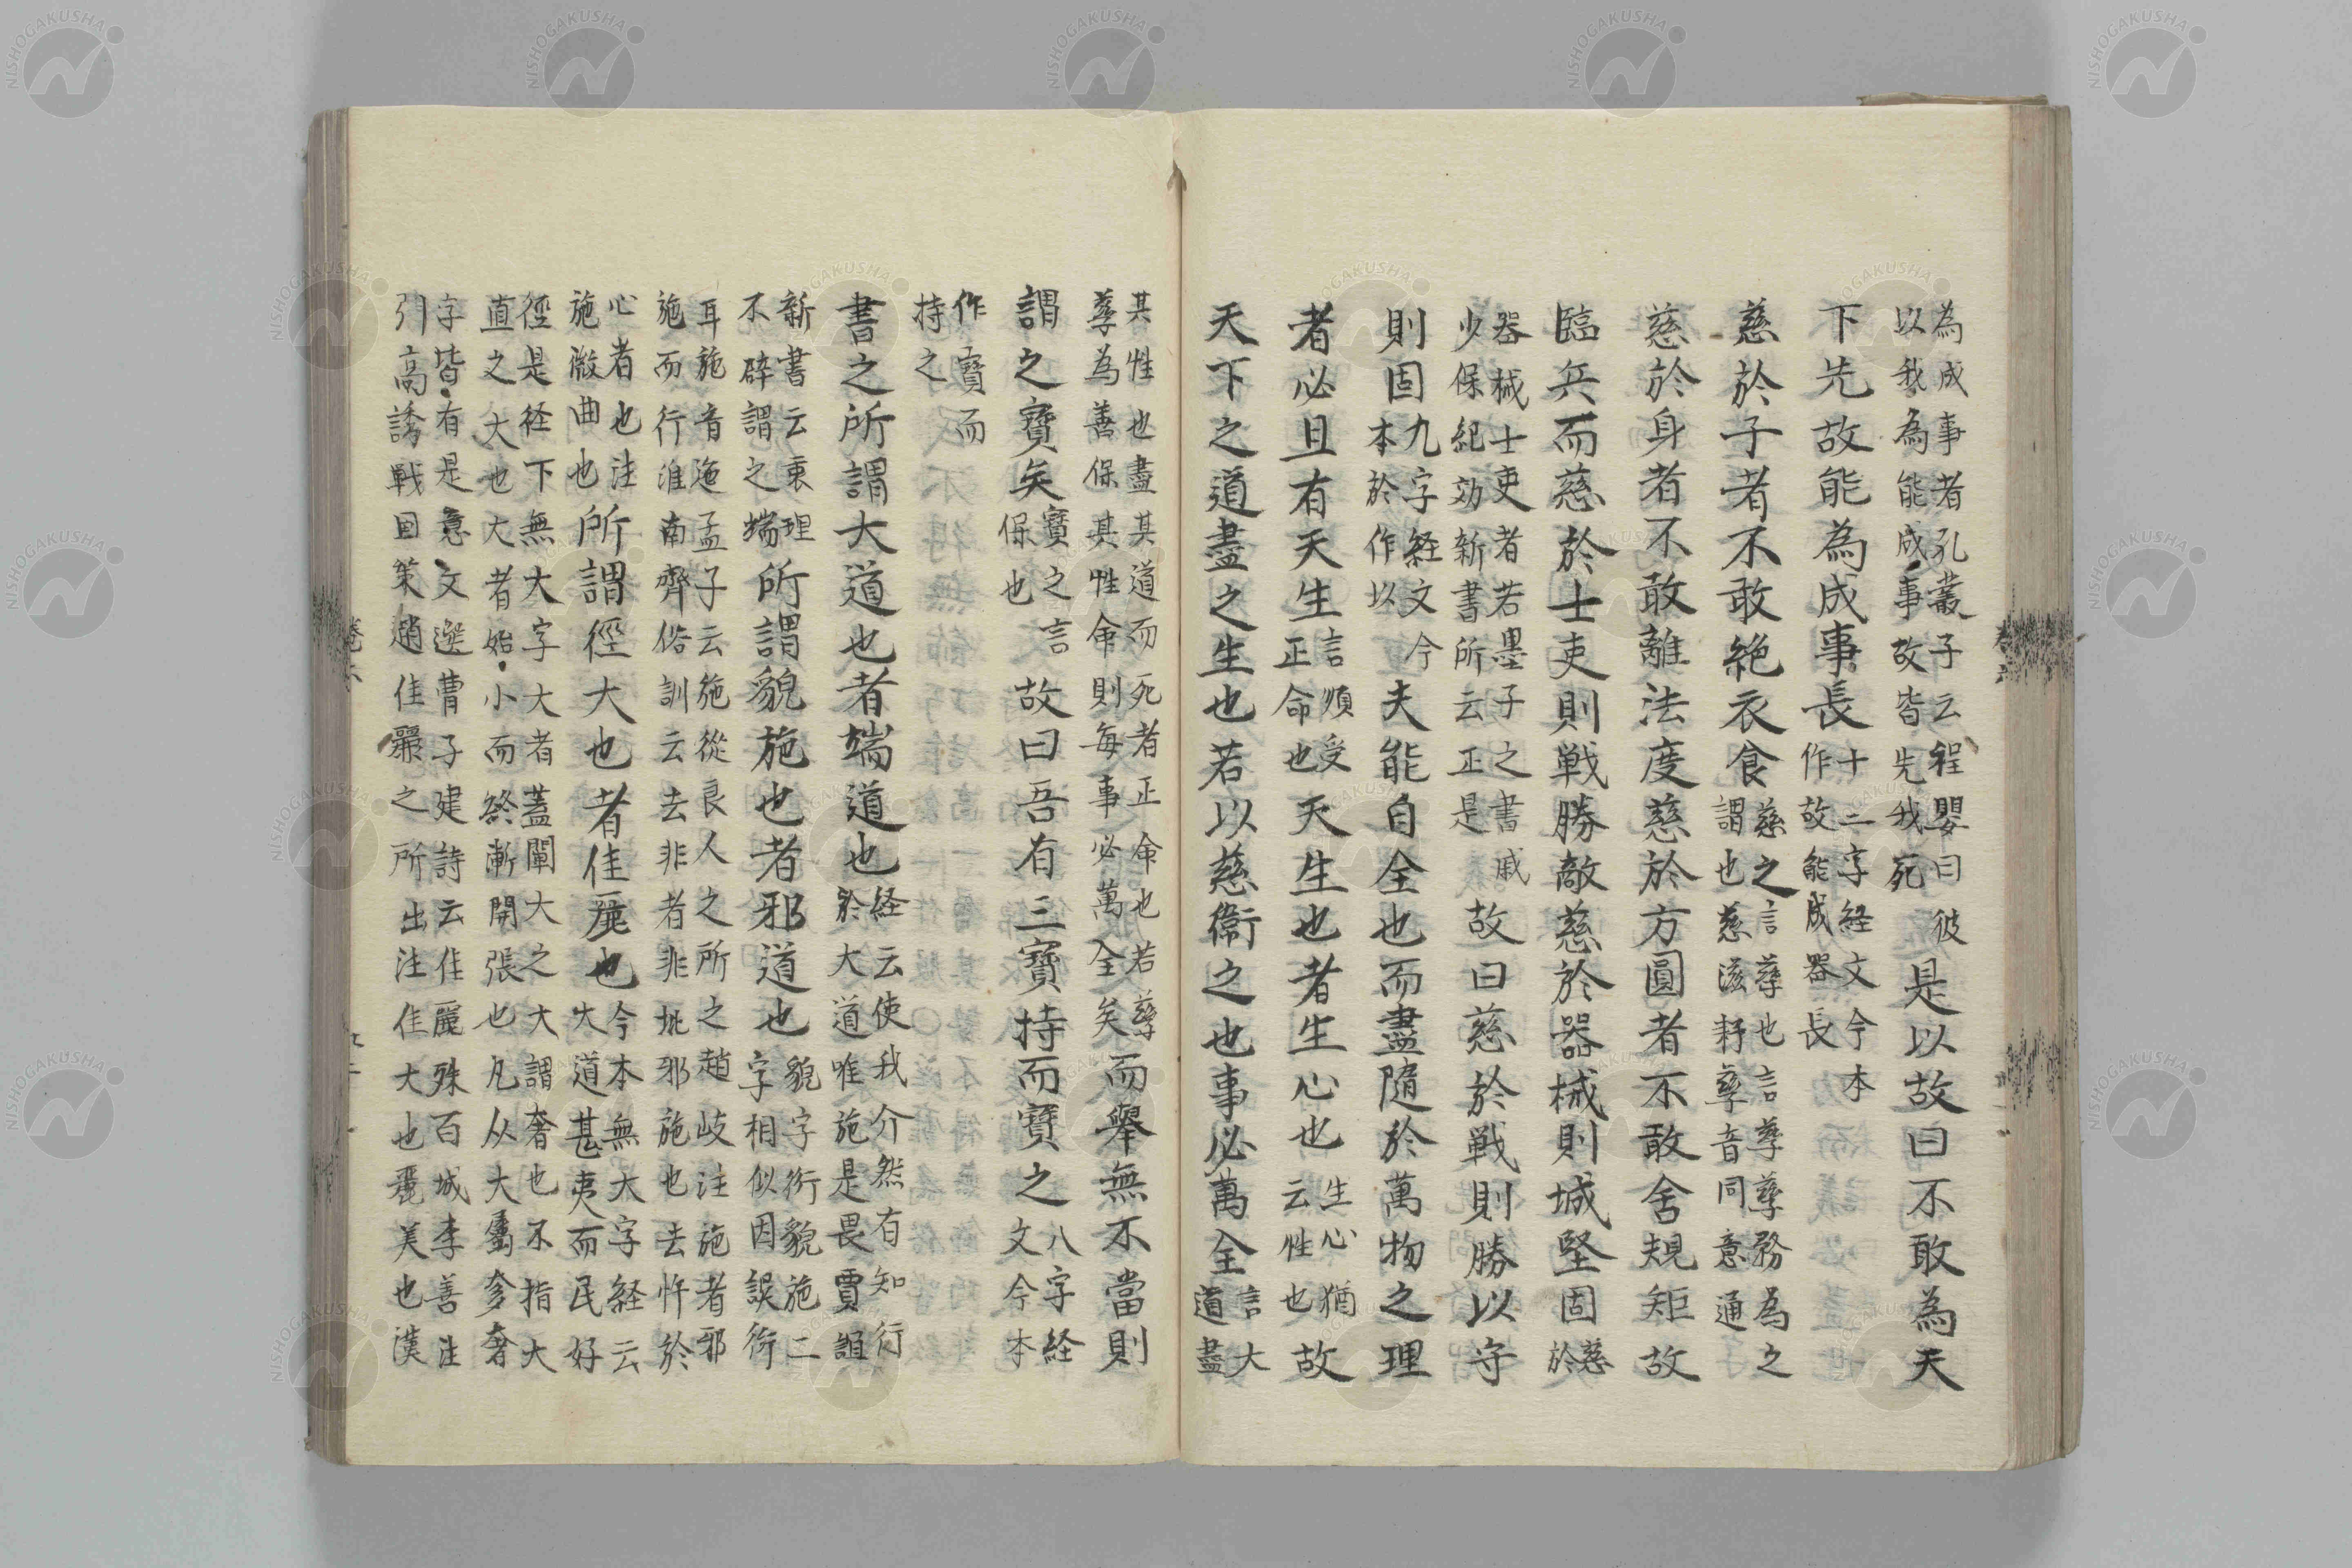 為成事者孔叢子云程嬰曰彼
以我為能成事故皆先我死
是以故曰不敢為天
下先故能為成事長
十二字経文今本
作故能成器長
慈於子者不敢絶衣食
慈之言孳也言孳孳務為之
謂也慈滋耔孳音同意通
慈於身者不敢離法度慈於方圓者不敢舍規矩故
臨兵而慈於士吏則戦勝敵慈於器械則城堅固
慈
於
器械士吏者若墨子之書戚
少保紀効新書所云正是
故曰慈於戦則勝以守
則固
九字経文今
本於作以
夫能自全也而盡隨於萬物之理
者必且有天生
言順受
正命也
天生也者生心也
生心猶
云性也
故
天下之道盡之生也若以慈衞之也事必萬全
言大
道盡
其性也盡其道而死者正命也若孳
孳為善保其性命則每事必萬全矣
而舉無不當則
謂之寶矣
寶之言
保也
故曰吾有三寶持而寶之
八字経
文今本
作寶而
持之
書之所謂大道也者端道也
経云使我介然有知行
於大道唯施是畏賈誼
新書云衷理
不辟謂之端
所謂貌施也者邪道也
貌字衍貌施二
字相似因誤衍
耳施音迤孟子云施從良人之所之趙岐注施者邪
施而行淮南齊俗訓云去非者非批邪施也去忤於
心者也注
施微曲也
所謂徑大也者佳麗也
今本無大字経云
大道甚夷而民好
徑是径下無大字大者蓋闡大之大謂奢也不指大
直之大也大者始小而終漸開張也凡从大奓奢
字皆有是意文選曹子建詩云佳麗殊百城李善注
引高誘戦国策趙佳麗之所出注佳大也麗美也漢